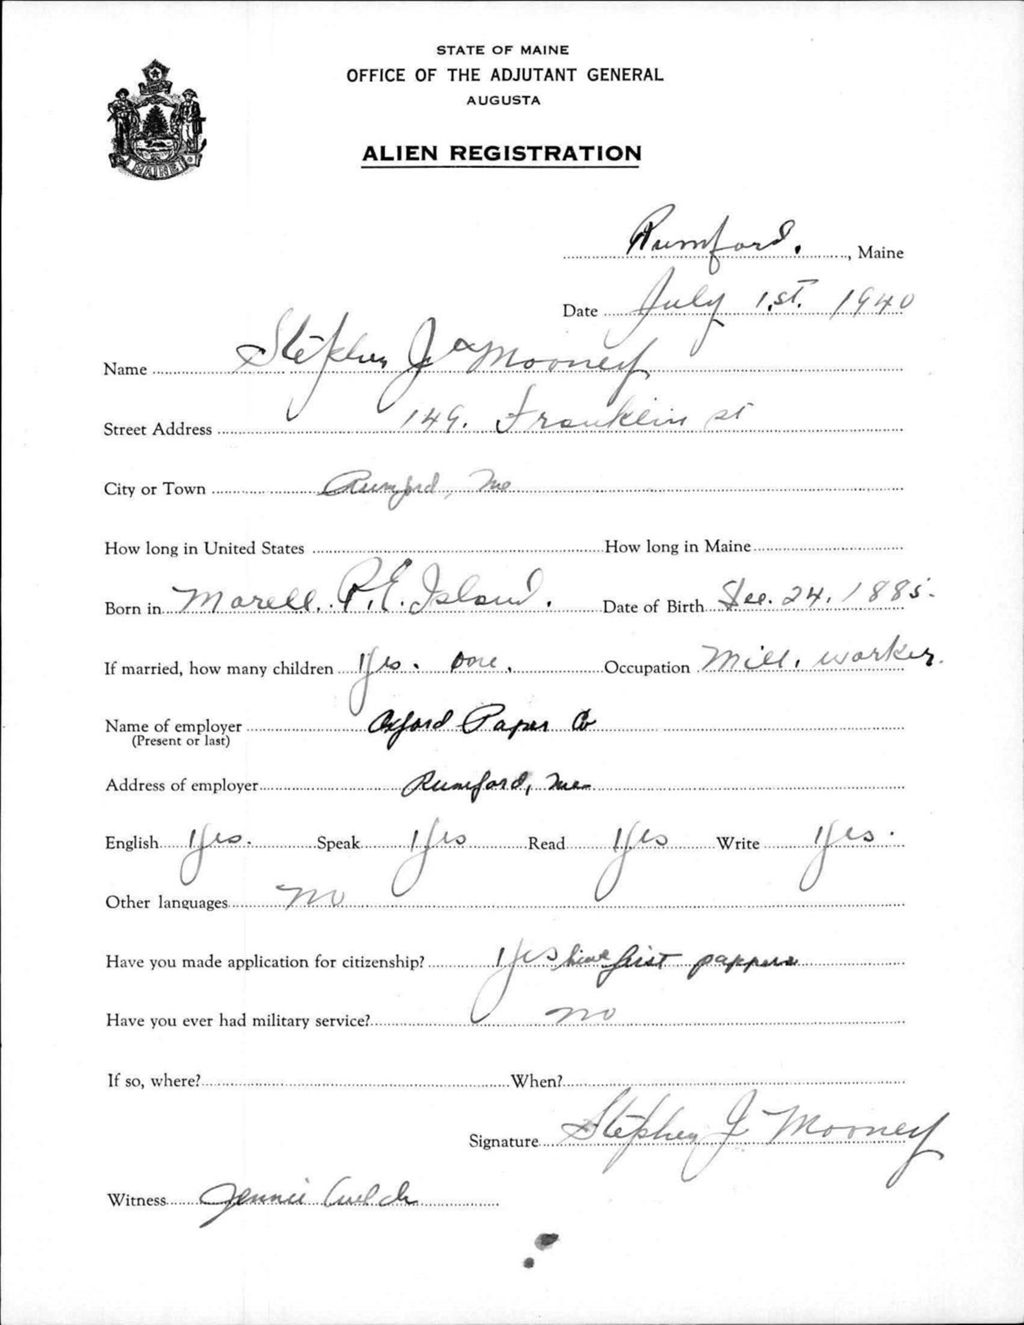 STATE OF MAINE
OFFICE OF THE ADJUTANT GENERAL
AUGUSTA
ALIEN REGISTRATION
MAINE
Rumford. , Maine
Date July 1st. 1940
Name Stephen J Mooney
Street Address 149. Franklin st
City or Town Rumford, Me
How long in United States How long in Maine
Born in Morell. P.E. Island. Date of Birth Dec. 24, 1885.
If married, how many children Yes. one. Occupation Mill. worker.
Name of employer Oxford Paper Co
(Present or last)
Address of employer Rumford, Me
English Yes. Speak Yes Read Yes Write Yes.
Other languages no
Have you made application for citizenship? Yes have first pappers
Have you ever had military service? no
If so, where? When?
Signature Stephen J Mooney
Witness Jennie